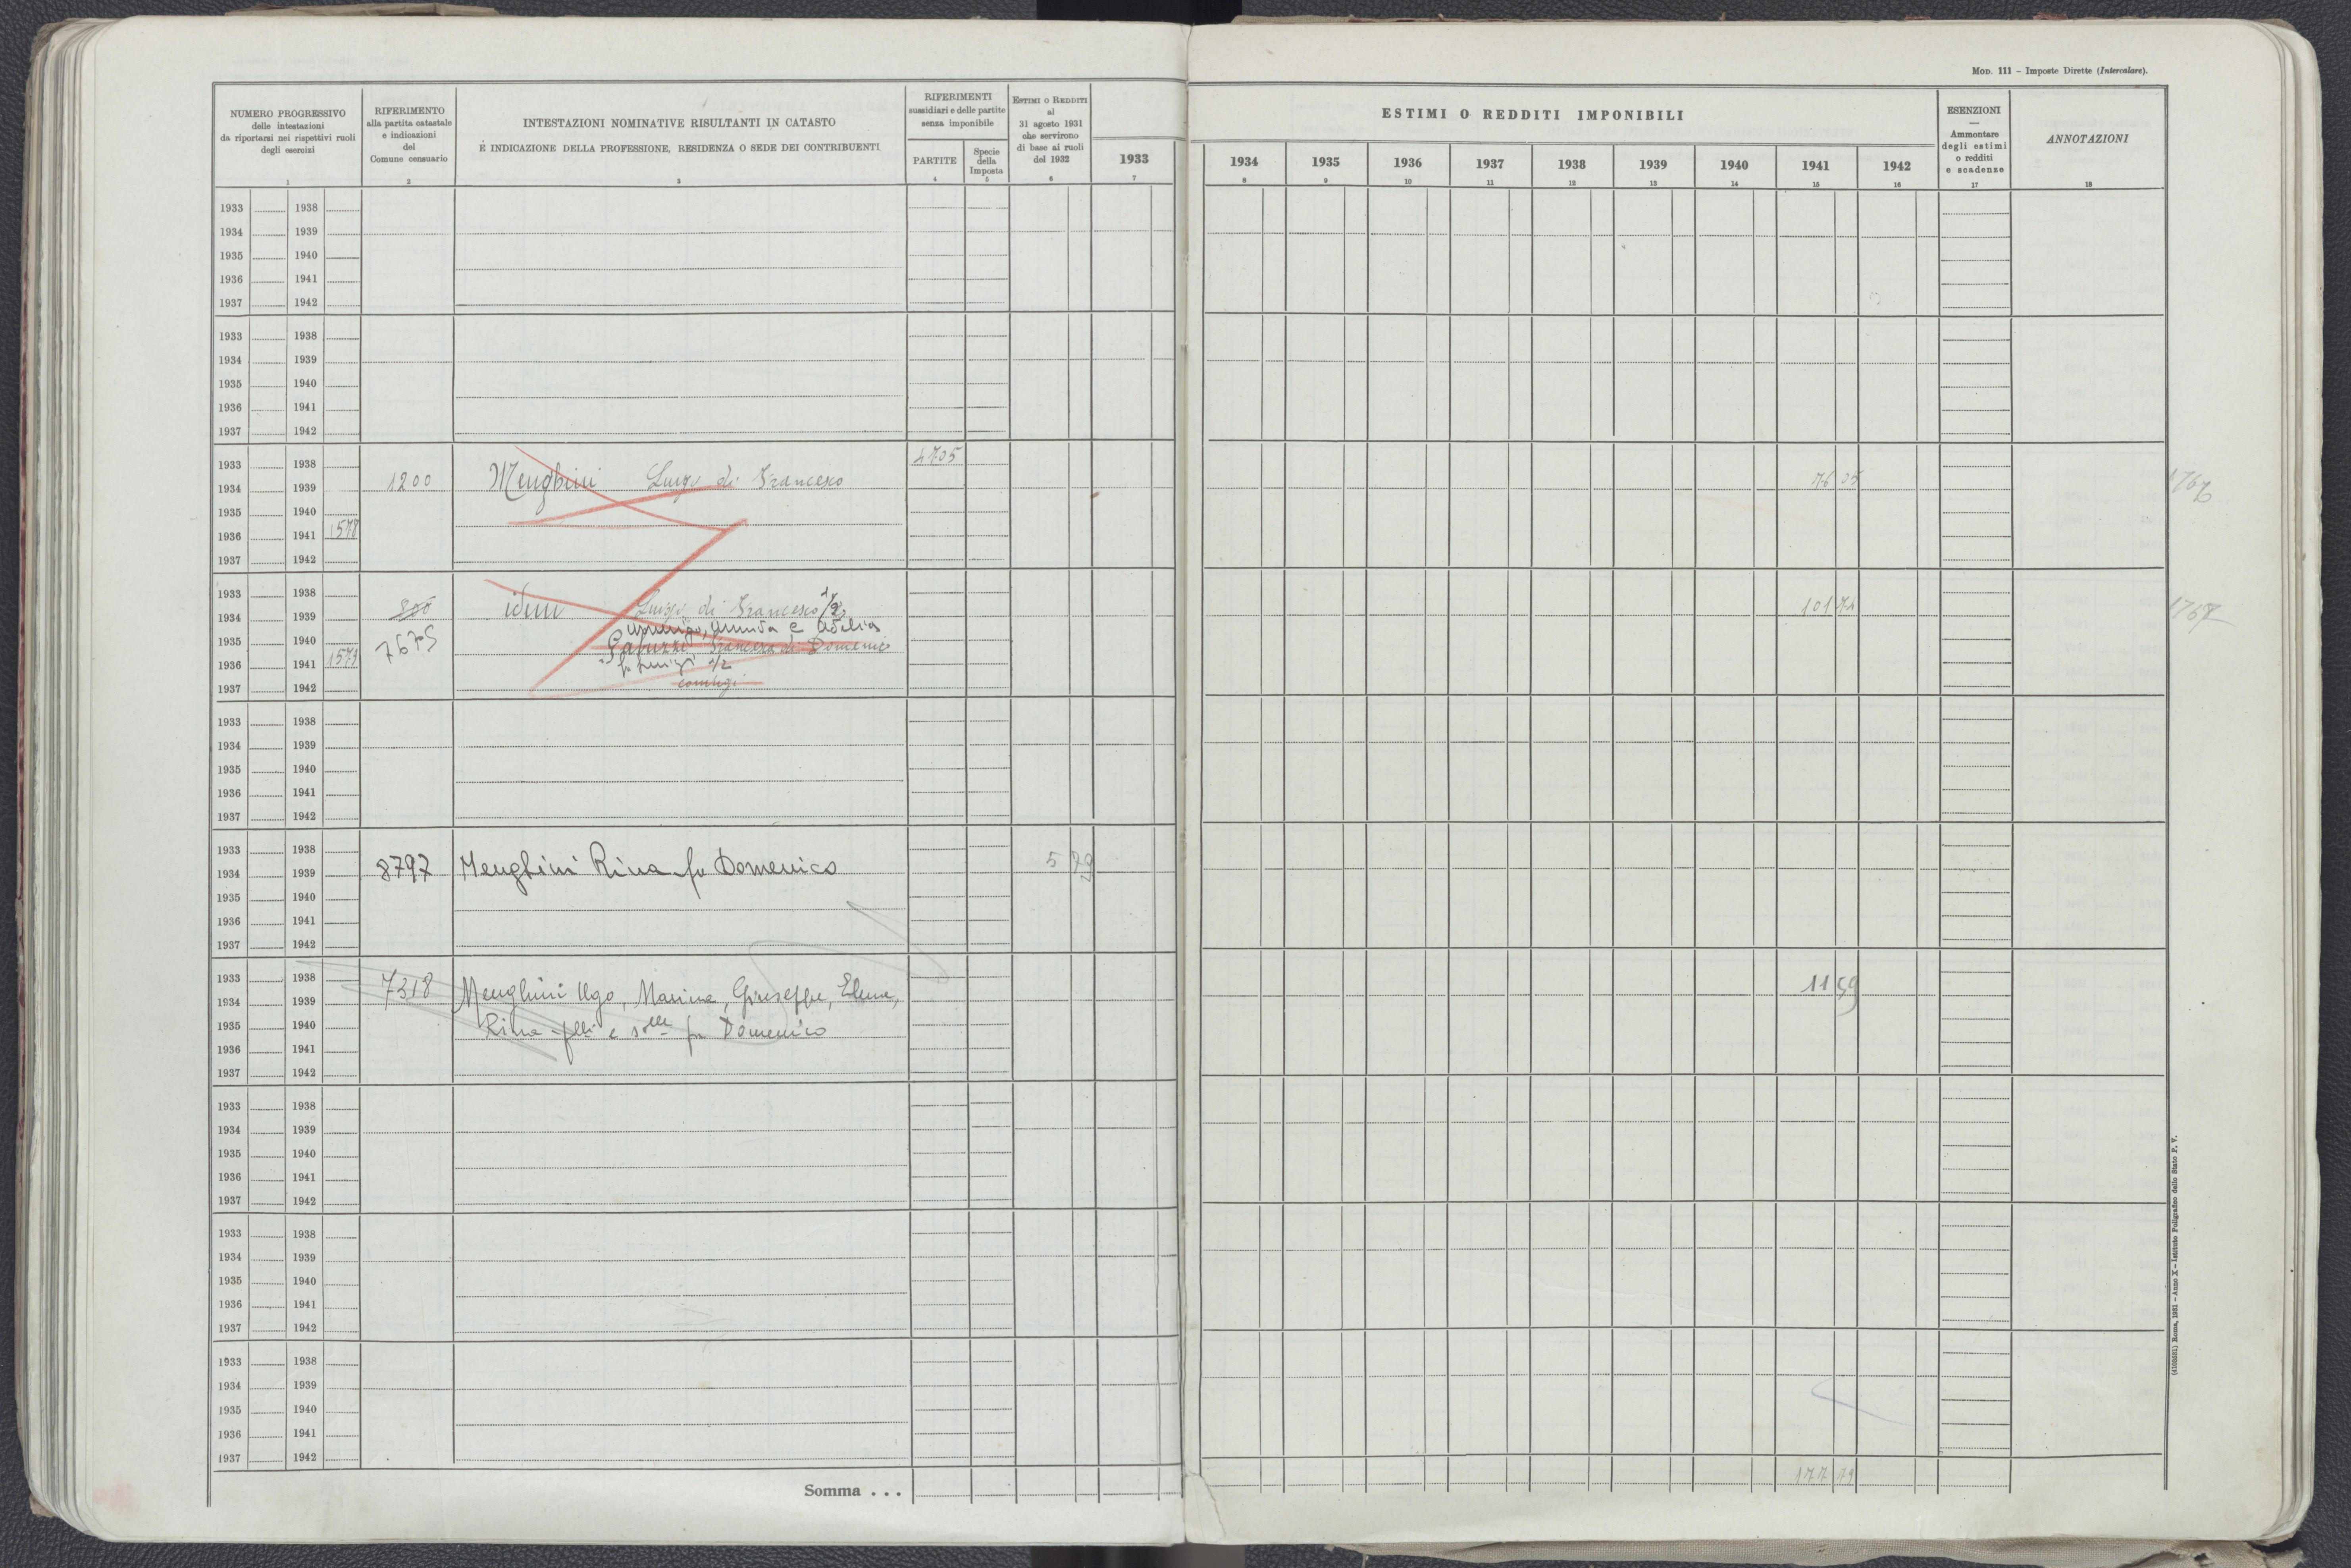 MOD. 111 - Imposte Dirette (Intercalare).
NUMERO PROGRESSIVO
delle intestazioni
da riportarsi nei rispettivi ruoli
degli esercizi
1
RIFERIMENTO
alla partita catastale
e indicazioni
del
Comune censuario
2
INTESTAZIONI NOMINATIVE RISULTANTI IN CATASTO
E INDICAZIONE DELLA PROFESSIONE, RESIDENZA O SEDE DEI CONTRIBUENTI
3
RIFERIMENTI
sussidiari e delle partite
senza imponibile
PARTITE
4
Specie
della
Imposta
5
ESTIMI O REDDITI
al
31 agosto 1931
che servirono
di base ai ruoli
del 1932
6
ESTIMI O REDDITI IMPONIBILI
1933
7
1934
8
1935
9
1936
10
1937
11
1938
12
1939
13
1940
14
1941
15
1942
16
ESENZIONI
—
Ammontare
degli estimi
o redditi
e scadenze
17
ANNOTAZIONI
18
1933 1938
1934 1939
1935 1940
1936 1941
1937 1942
1933 1938
1934 1939
1935 1940
1936 1941
1937 1942
1933 1938 4705
1934 1939 1200 Menghini Luigi di Francesco 76 05
1935 1940
1936 1941 1578
1937 1942
1933 1938
1934 1939 800 idem Luigi di Francesco 1/2 101 74 1767
Armida e Adelia
1935 1940 7675 Francesca di Domenico
1936 1941 1579 fu Luigi 1/2
1937 1942 coniugi
1933 1938
1934 1939
1935 1940
1936 1941
1937 1942
1933 1938
1934 1939 8797 Menghini Rina fu Domenico 5 79
1935 1940
1936 1941
1937 1942
1933 1938 7318
1934 1939 Menghini Ugo, Marina, Giuseppe, Elena, 11 59
1935 1940 Rina flli eslle fu Domenico
1936 1941
1937 1942
1933 1938
1934 1939
1935 1940
1936 1941
1937 1942
1933 1938
1934 1939
1935 1940
1936 1941
1937 1942
1933 1938
1934 1939
1935 1940
1936 1941
1937 1942
Somma . . . 177 79
(4103531) Roma, 1931 - Anno X - Istituto Poligrafico dello Stato P. V.